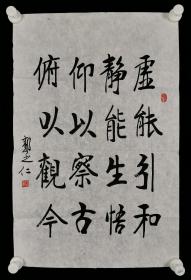 虚能引和
静能生悟
仰以察古
俯以觀今
郭之仁